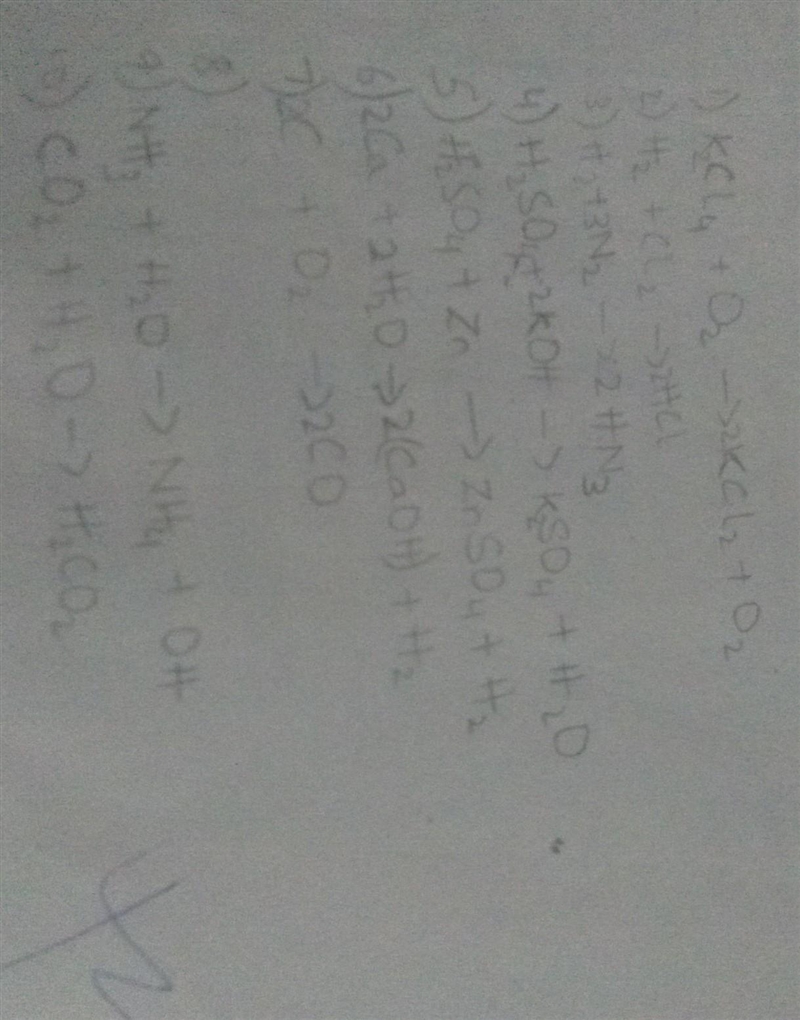 1) K2CL4 + O2 → 2KCl2 + O2
2) H2 + CL2 → 2HCl
3) H2 + 3N2 → 2HN3
4) H2SO4 + 2KOH → K2SO4 + H2O
5) H2SO4 + Zn → ZnSO4 + H2
6) 2Ca + 2H2O → 2(CaOH) + H2
7) 2C + O2 → 2CO
8)
9) NH3 + H2O → NH4 + OH
10) CO2 + H2O → H2CO2